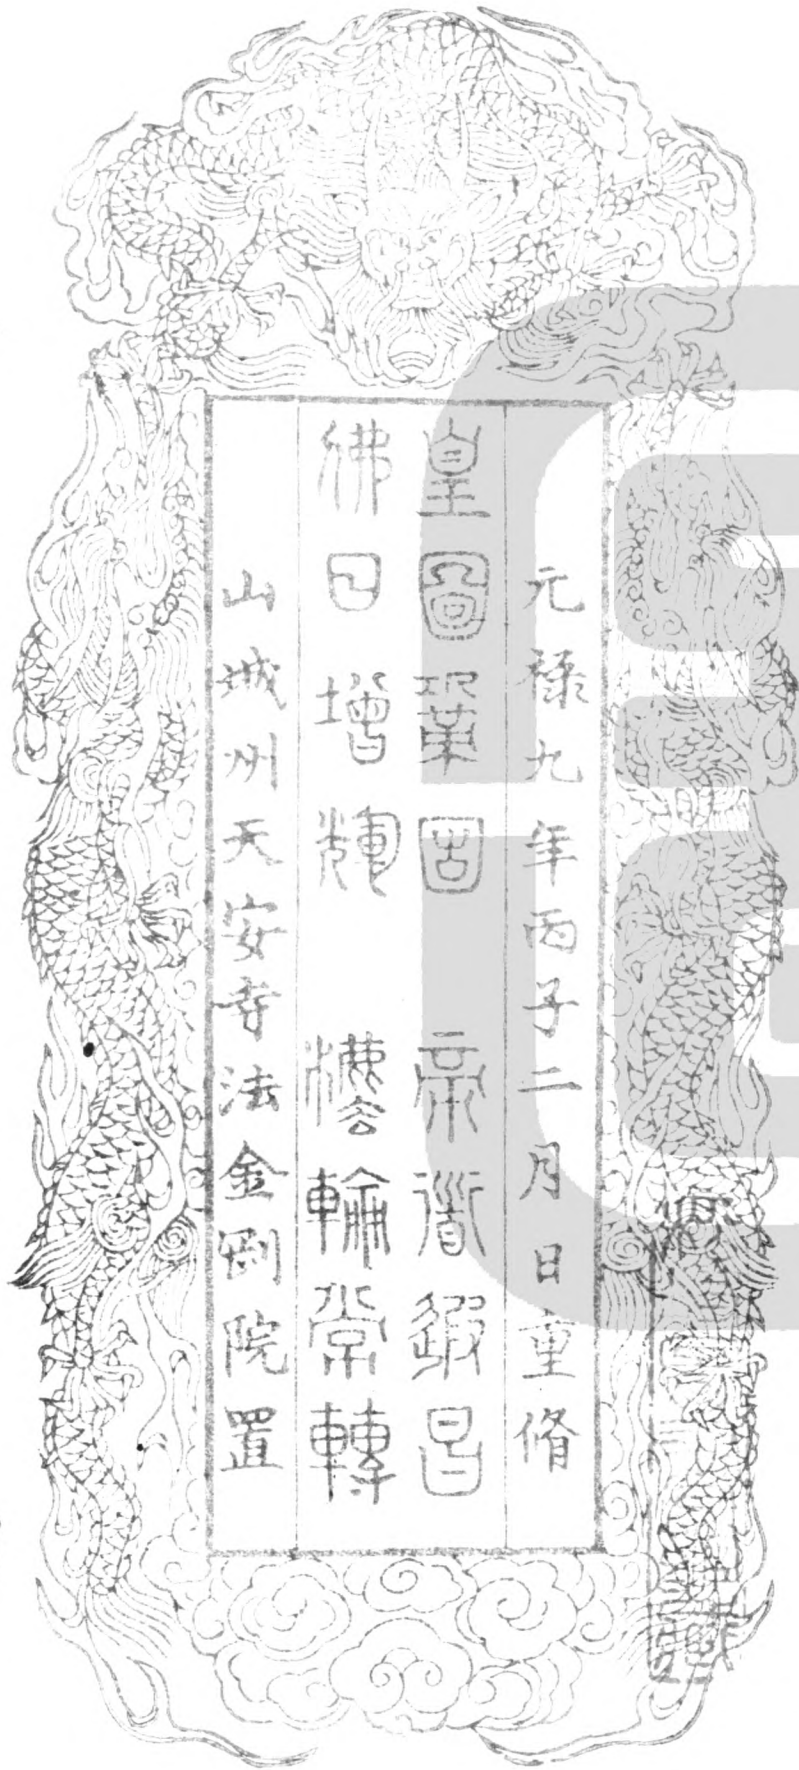 元祿九年丙子二月日重脩
皇圖鞏固　帝道遐昌
佛日增輝　法輪常轉
山城州天安寺法金剛院置
藏